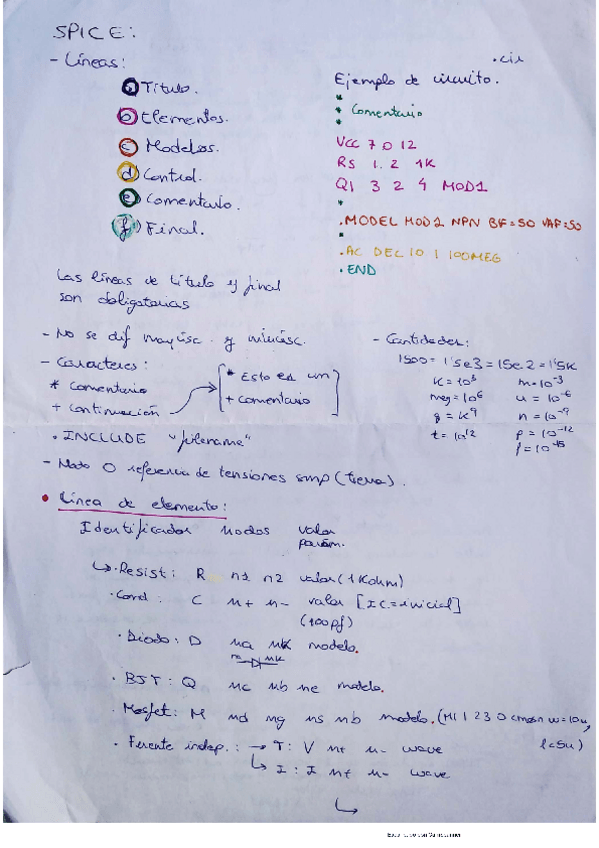 SPICE:
- Líneas:
a Título.
b Elementos.
c Modelos.
d Control.
e Comentario.
f Final.
.cir
Ejemplo de circuito.
*
* Comentario
*
VCC 7 0 12
RS 1 2 1K
Q1 3 2 4 MOD1
*
.MODEL MOD1 NPN BF=50 VAF=50
*
.AC DEC 10 1 100MEG
.END
Las líneas de título y final
son obligatorias
- No se dif mayúsc. y minúsc.
- Caracteres:
* Comentario
+ Continuación
* Esto es un
+ comentario
. INCLUDE "filename"
- Cantidades:
1500 = 1'5e3 = 15e2 = 1'5K
m=10^-3
meg = 10^6
u = 10^-6
n = 10^-9
t = 10^12
p = 10^-12
f = 10^-15
- Nodo 0 referencia de tensiones smp (tierra).
• Línea de elemento:
Identificador nodos valor
parám.
↳ . Resist: R n1 n2 valor (1Kohm)
. Cond: C n+ n- valor [IC=inicial]
(100pf)
. Diodo: D na nk modelo.
na nk
. BJT: Q nc nb ne modelo.
. Mosfet: M nd ng ns nb modelo. (M1 1 2 3 0 cmosn w=10u,
l=5u)
. Fuente indep.: → T: V n+ n- wave
↳ I: I n+ n- wave
↳